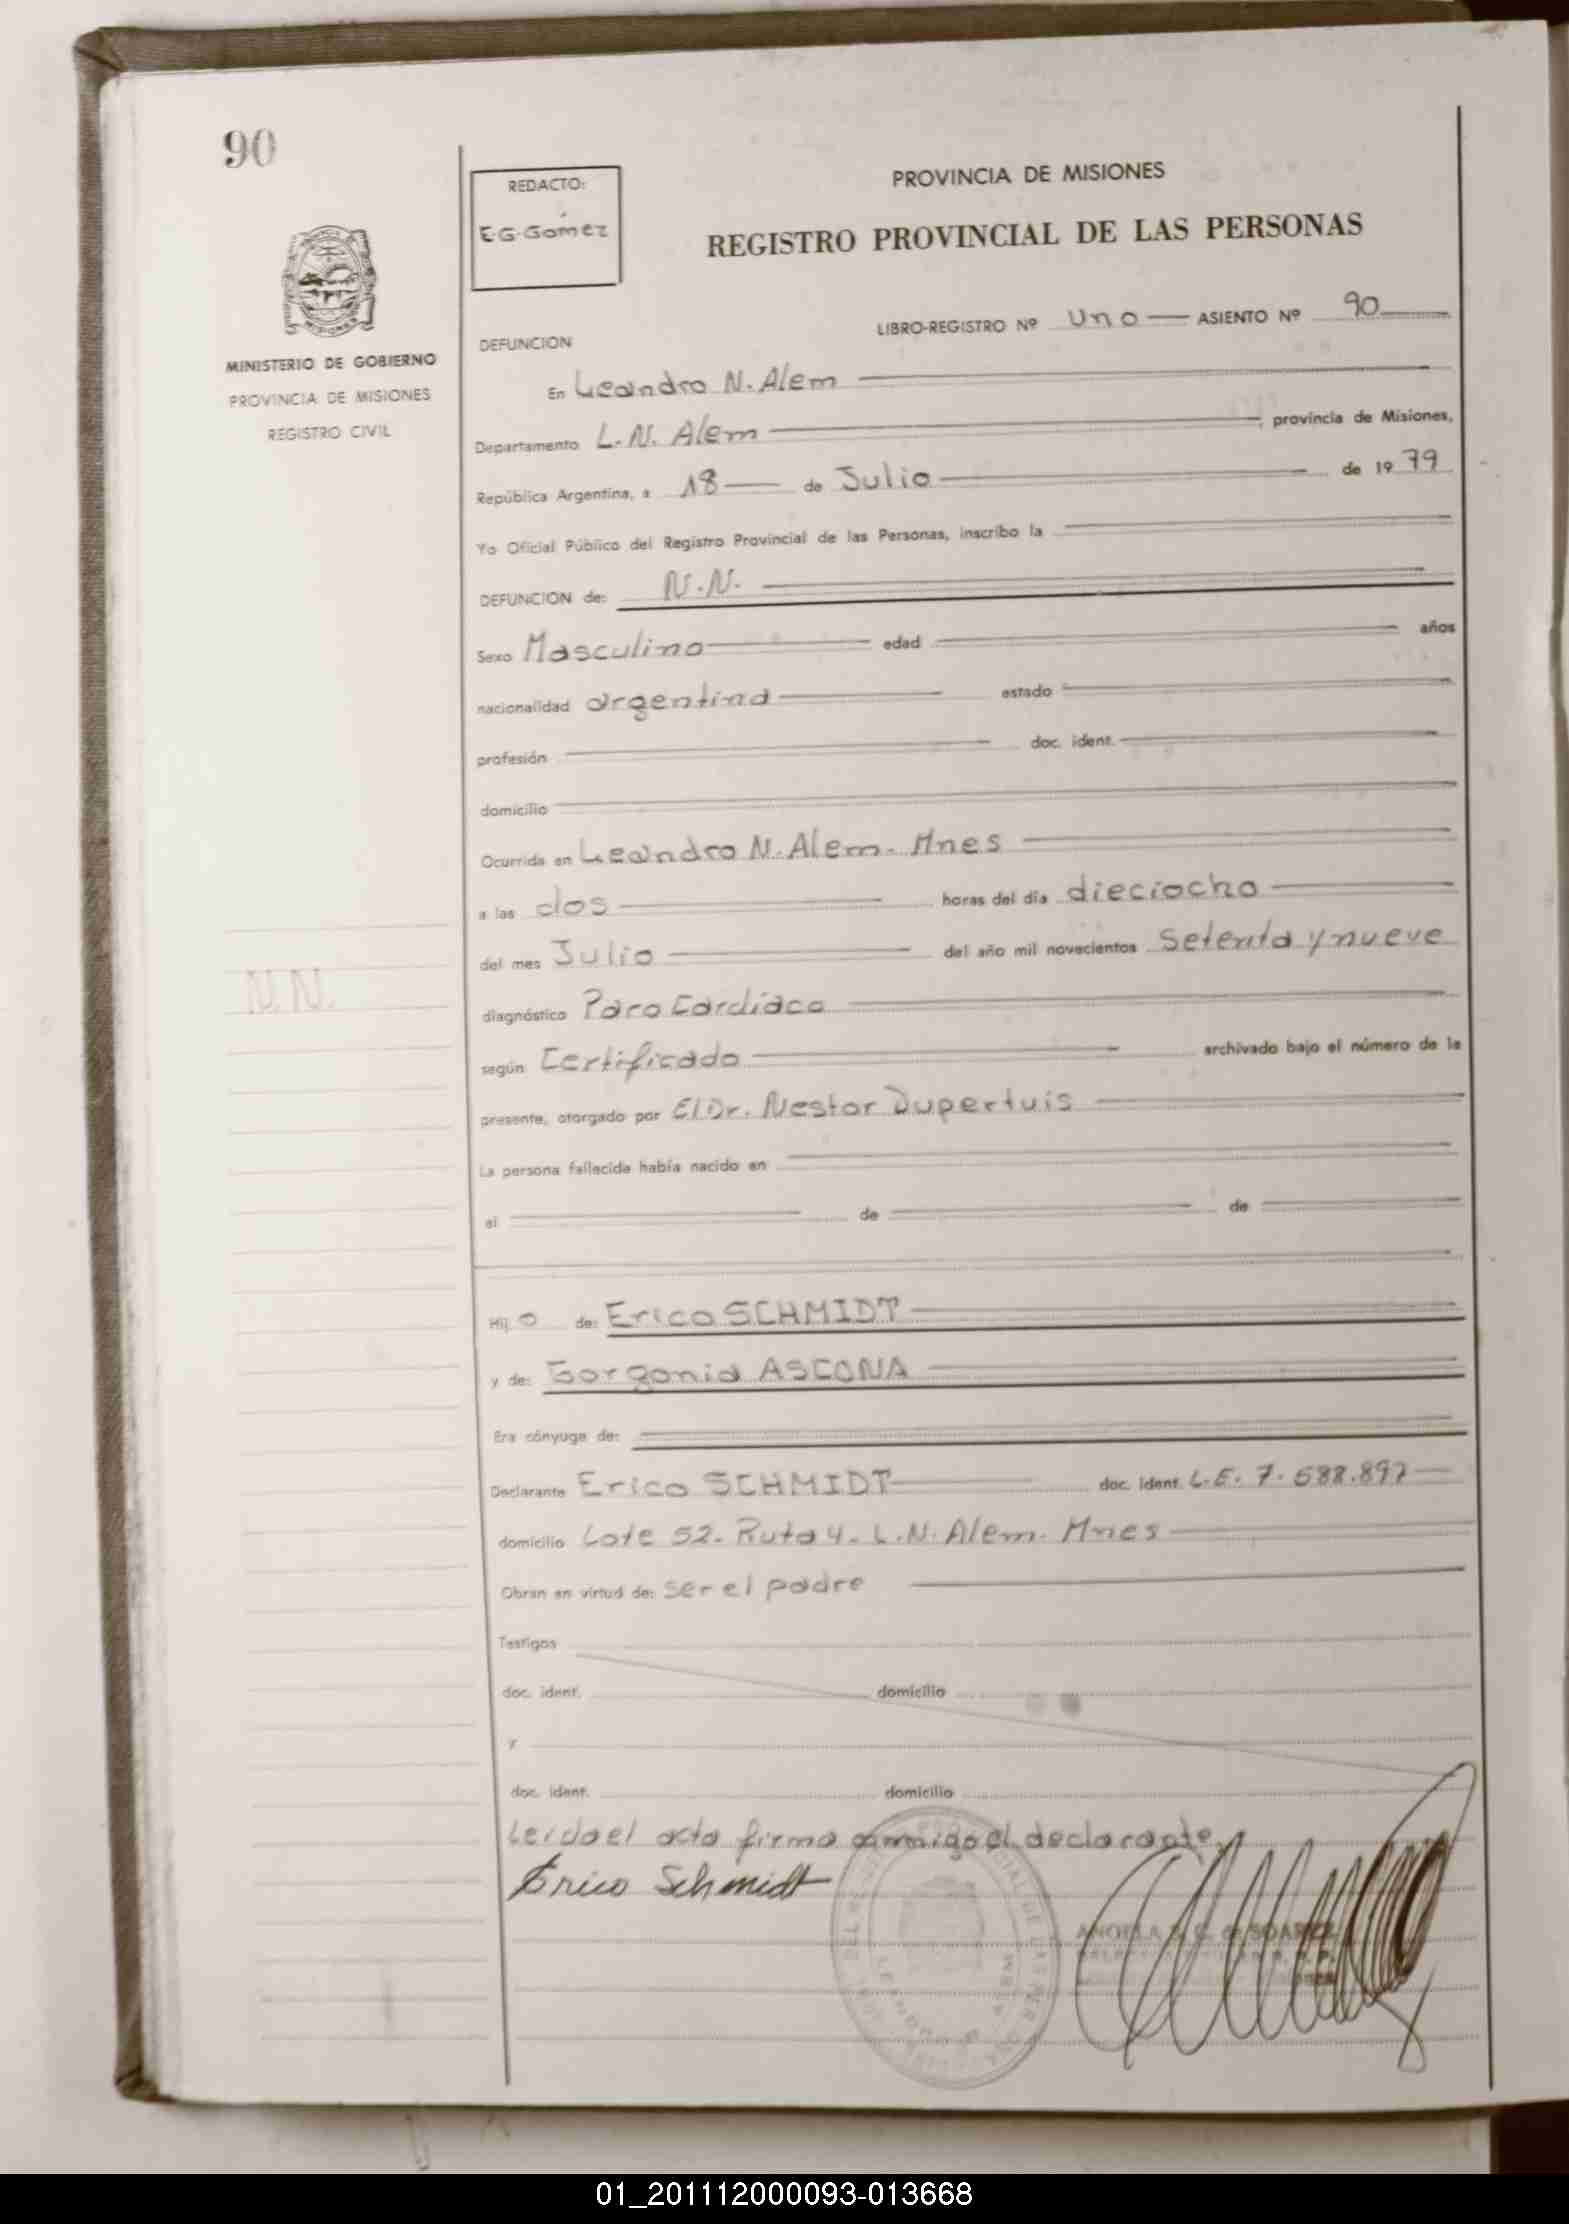 90
REDACTO:
E.G. Gómez
PROVINCIA DE MISIONES
REGISTRO PROVINCIAL DE LAS PERSONAS
MINISTERIO DE GOBIERNO
PROVINCIA DE MISIONES
REGISTRO CIVIL
LIBRO-REGISTRO Nº Uno ASIENTO Nº 90
DEFUNCION
En Leandro N. Alem
Departamento L. N. Alem, provincia de Misiones,
República Argentina, a 18 de Julio de 1979
Yo Oficial Público del Registro Provincial de las Personas, inscribo la
DEFUNCION de: N.N.
Sexo Masculino edad años
nacionalidad argentina estado
profesión doc. ident.
domicilio
Ocurrida en Leandro N. Alem. Mnes
a las dos horas del día dieciocho
del mes Julio del año mil novecientos setenta y nueve
N.N.
diagnóstico Paro Cardíaco
según Certificado archivado bajo el número de la
presente, otorgado por El Dr. Nestor Dupertuis
La persona fallecida había nacido en
el de de
Hij o de: Erico SCHMIDT
y de: Gorgonia ASCONA
Era cónyuge de:
Declarante Erico SCHMIDT doc. ident. L.E. 7.588.897
domicilio Lote 52. Ruta 4. L.N. Alem. Mnes
Obran en virtud de: ser el padre
Testigos
doc. ident. domicilio
Y
doc. ident. domicilio
Leida el acta firma conmigo el declarante.
Erico Schmidt
ANGELA S. C. de SOAREZ
01_201112000093-013668